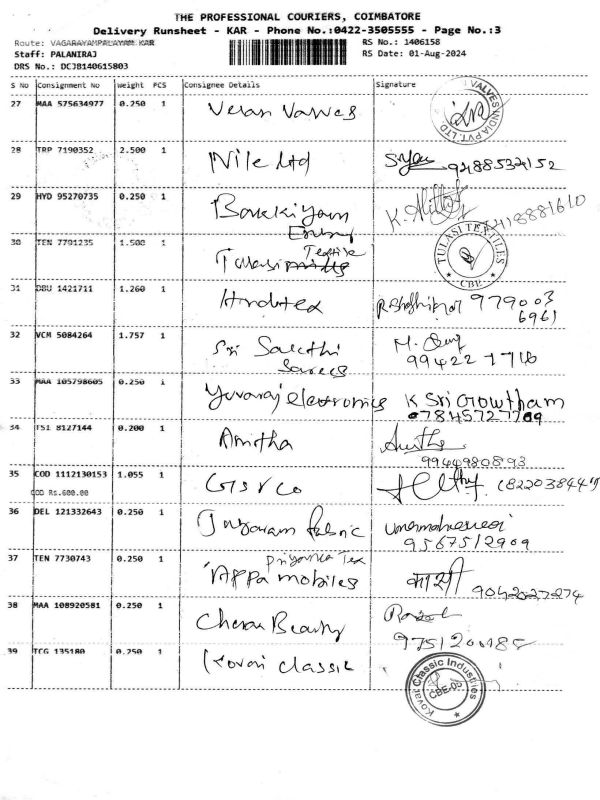 THE PROFESSIONAL COURIERS, COIMBATORE
Delivery Runsheet - KAR - Phone No.:0422-3505555 - Page No.:3
Route: VAGARAYAMPALAYAM.KAR RS No.: 1406158
Staff: PALANIRAJ RS Date: 01-Aug-2024
DRS No.: DCJB140615803
S No Consignment No Weight PCS Consignee Details Signature
27 MAA 575634977 0.250 1 Valves VALVES INDIA PVT. LTD
28 TRP 7190352 2.500 1 Nile Ltd
29 HYD 95270735 0.250 1 K.
Energy
30 TEN 7791235 1.500 1 Textile TULASI TEXTILES CBE
31 DBU 1421711 1.260 1 979003
6961
32 VCM 5084264 1.757 1 Sri Sakthi M.
Sarees
33 MAA 105798605 0.250 1 Yuvaraj electronics K Sri Gowtham
07845727709
34 TSI 8127144 0.200 1 Amitha
9944980893
35 COD 1112130153 1.055 1
COD Rs.600.00
36 DEL 121332643 0.250 1 Fabric umamaheswari
9567512909
Priyanka Tex
37 TEN 7730743 0.250 1 Appa mobiles 9042027274
38 MAA 108920581 0.250 1 Cheran Beauty
39 TCG 135180 0.250 1 Kovai classic Kovai Classic Industries CBE-05